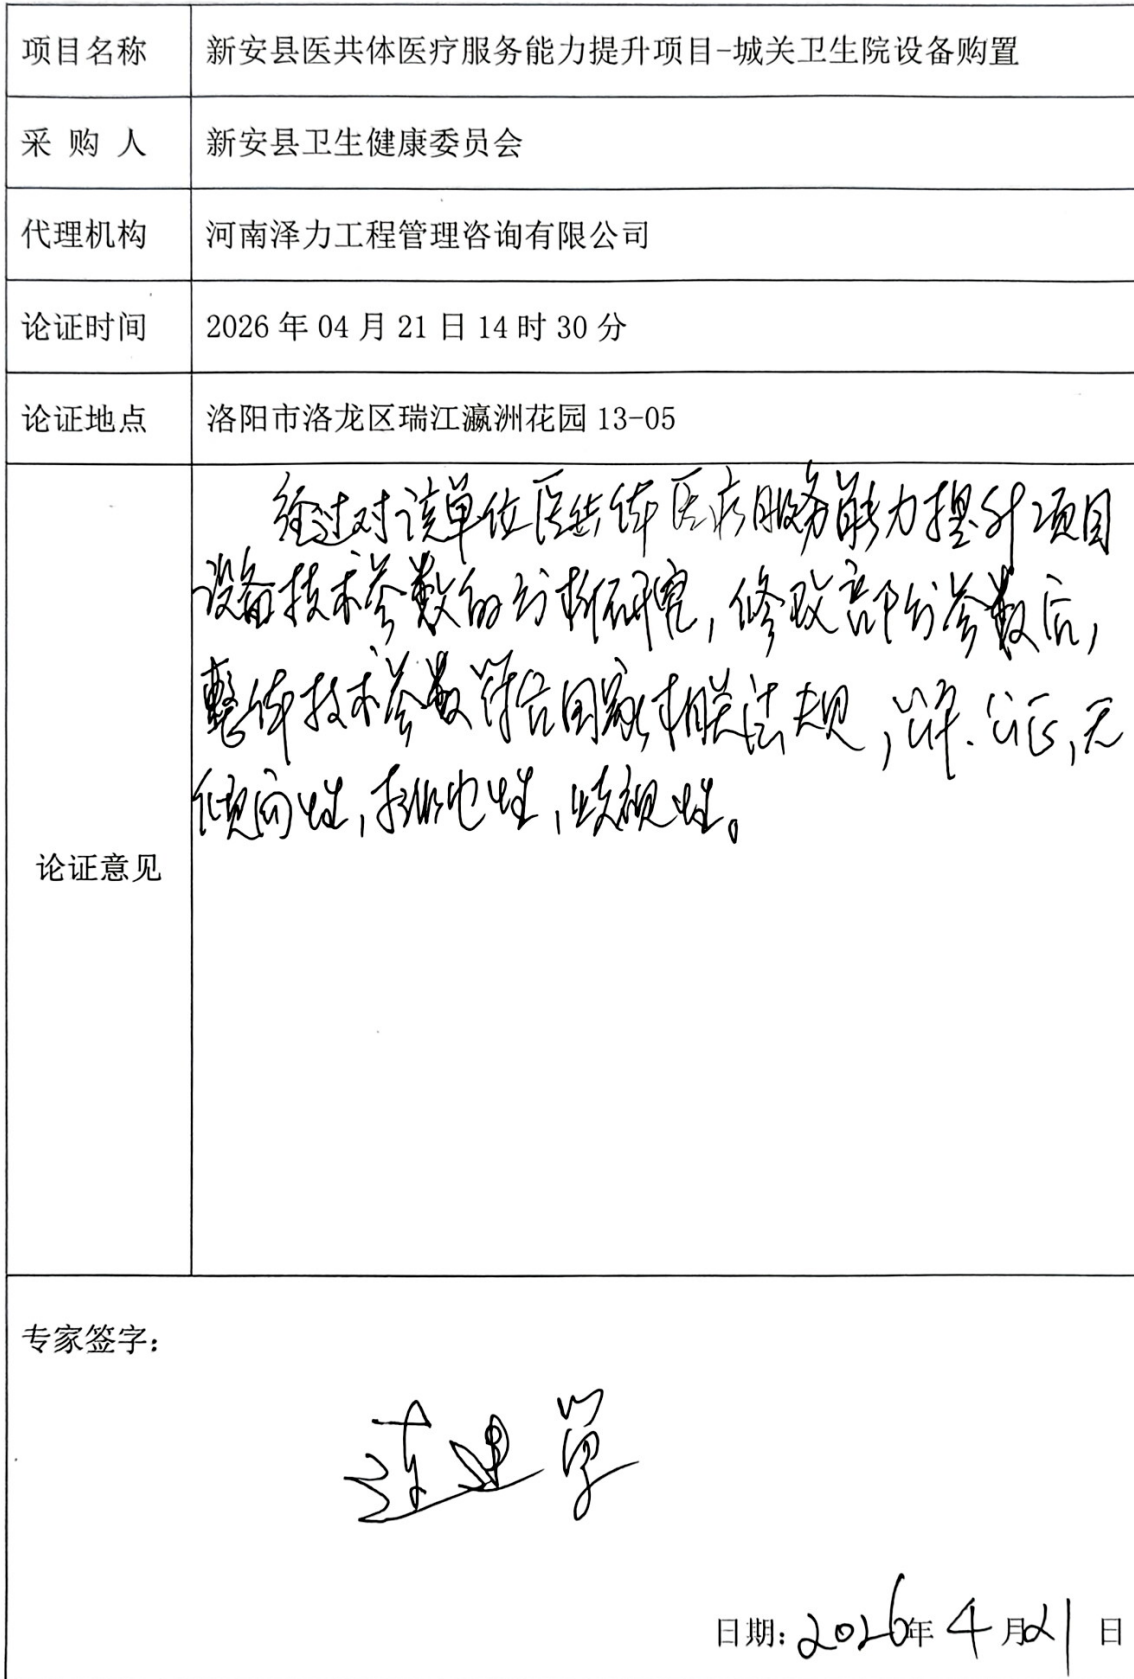 项目名称 新安县医共体医疗服务能力提升项目-城关卫生院设备购置
采 购 人 新安县卫生健康委员会
代理机构 河南泽力工程管理咨询有限公司
论证时间 2026 年 04 月 21 日 14 时 30 分
论证地点 洛阳市洛龙区瑞江瀛洲花园 13-05
经过对该单位医共体医疗服务能力提升项目
设备技术参数的分析研究，修改部分参数后，
整体技术参数符合国家相关法规，公平、公正，无
倾向性，排他性，歧视性。
论证意见
专家签字：
日期：2026年 4 月 21 日